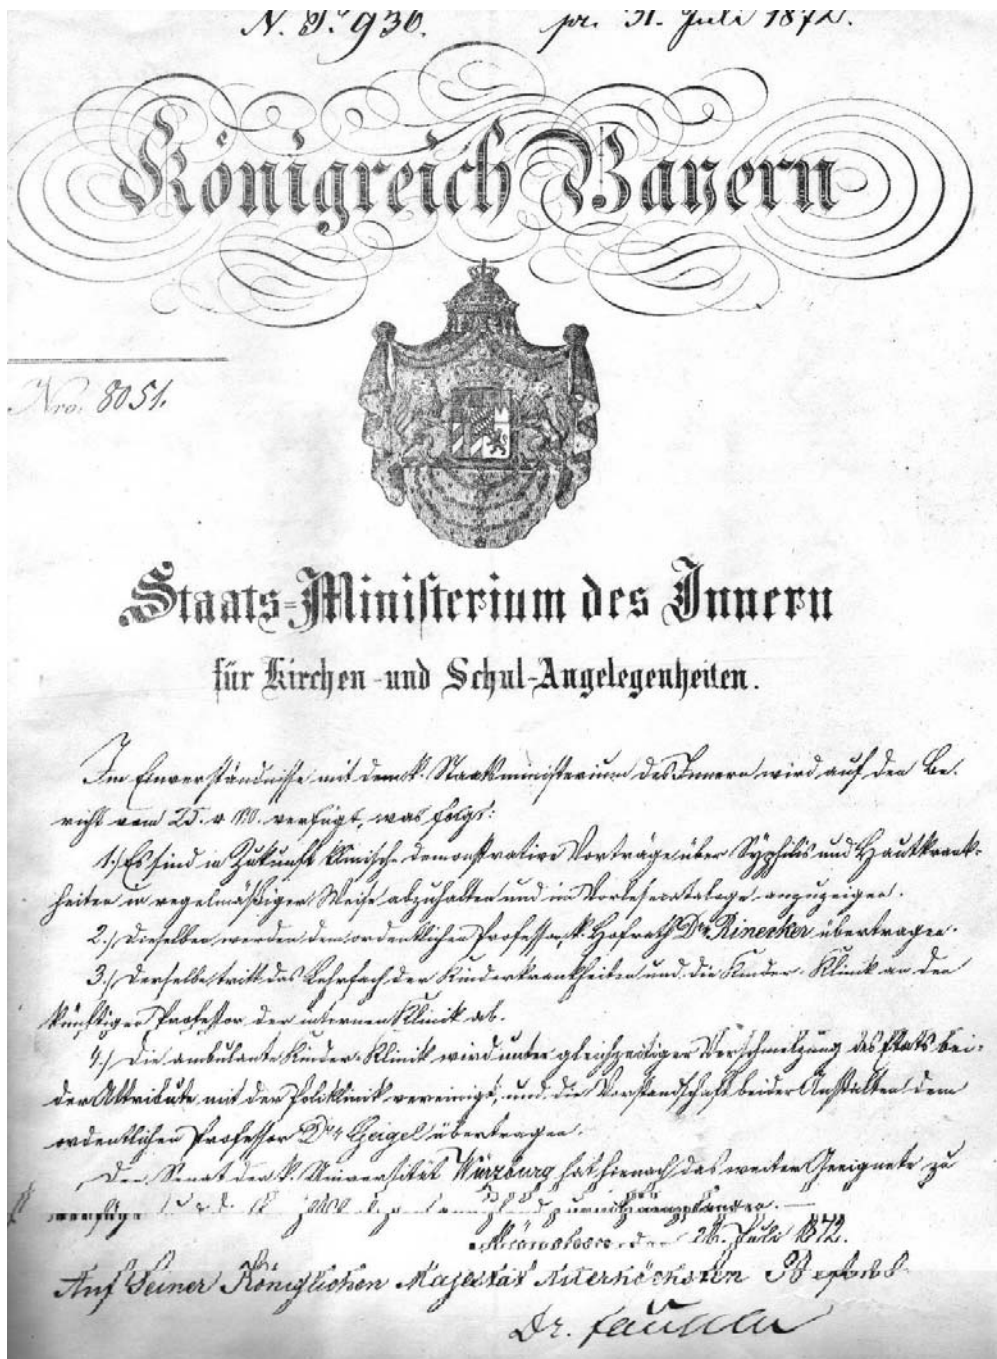 N. S. 936. pr. 31. Juli 1872.
Königreich Bayern
Nro. 8051.
Staats=Ministerium des Innern
für Kirchen- und Schul-Angelegenheiten.
Im Einverständnisse mit dem k. Staatsministerium des Innern wird auf den Be-
richt vom 25. v. M. verfügt, was folgt:
1.) Es sind in Zukunft klinisch-demonstrative Vorträge über Syphilis und Hautkrank-
heiten in regelmäßiger Weise abzuhalten und im Vorlesecataloge anzuzeigen.
2.) Dieselben werden dem ordentlichen Professor k. Hofrath Dr. Rinecker übertragen.
3.) Derselbe tritt das Lehrfach der Kinderkrankheiten und die Kinder-Klinik an den
künftigen Professor der internen Klinik ab.
4.) Die ambulante Kinder-Klinik wird unter gleichzeitiger Verschmelzung des Etats bei-
der Attribute mit der Poliklinik vereinigt, und die Vorstandschaft beider Anstalten dem
ordentlichen Professor Dr. Geigel übertragen.
Der Senat der k. Universität Würzburg hat hienach das weiter Geeignete zu
verfügen
München, den 26. Juli 1872.
Auf Seiner Königlichen Majestät Allerhöchsten Befehl
Dr.